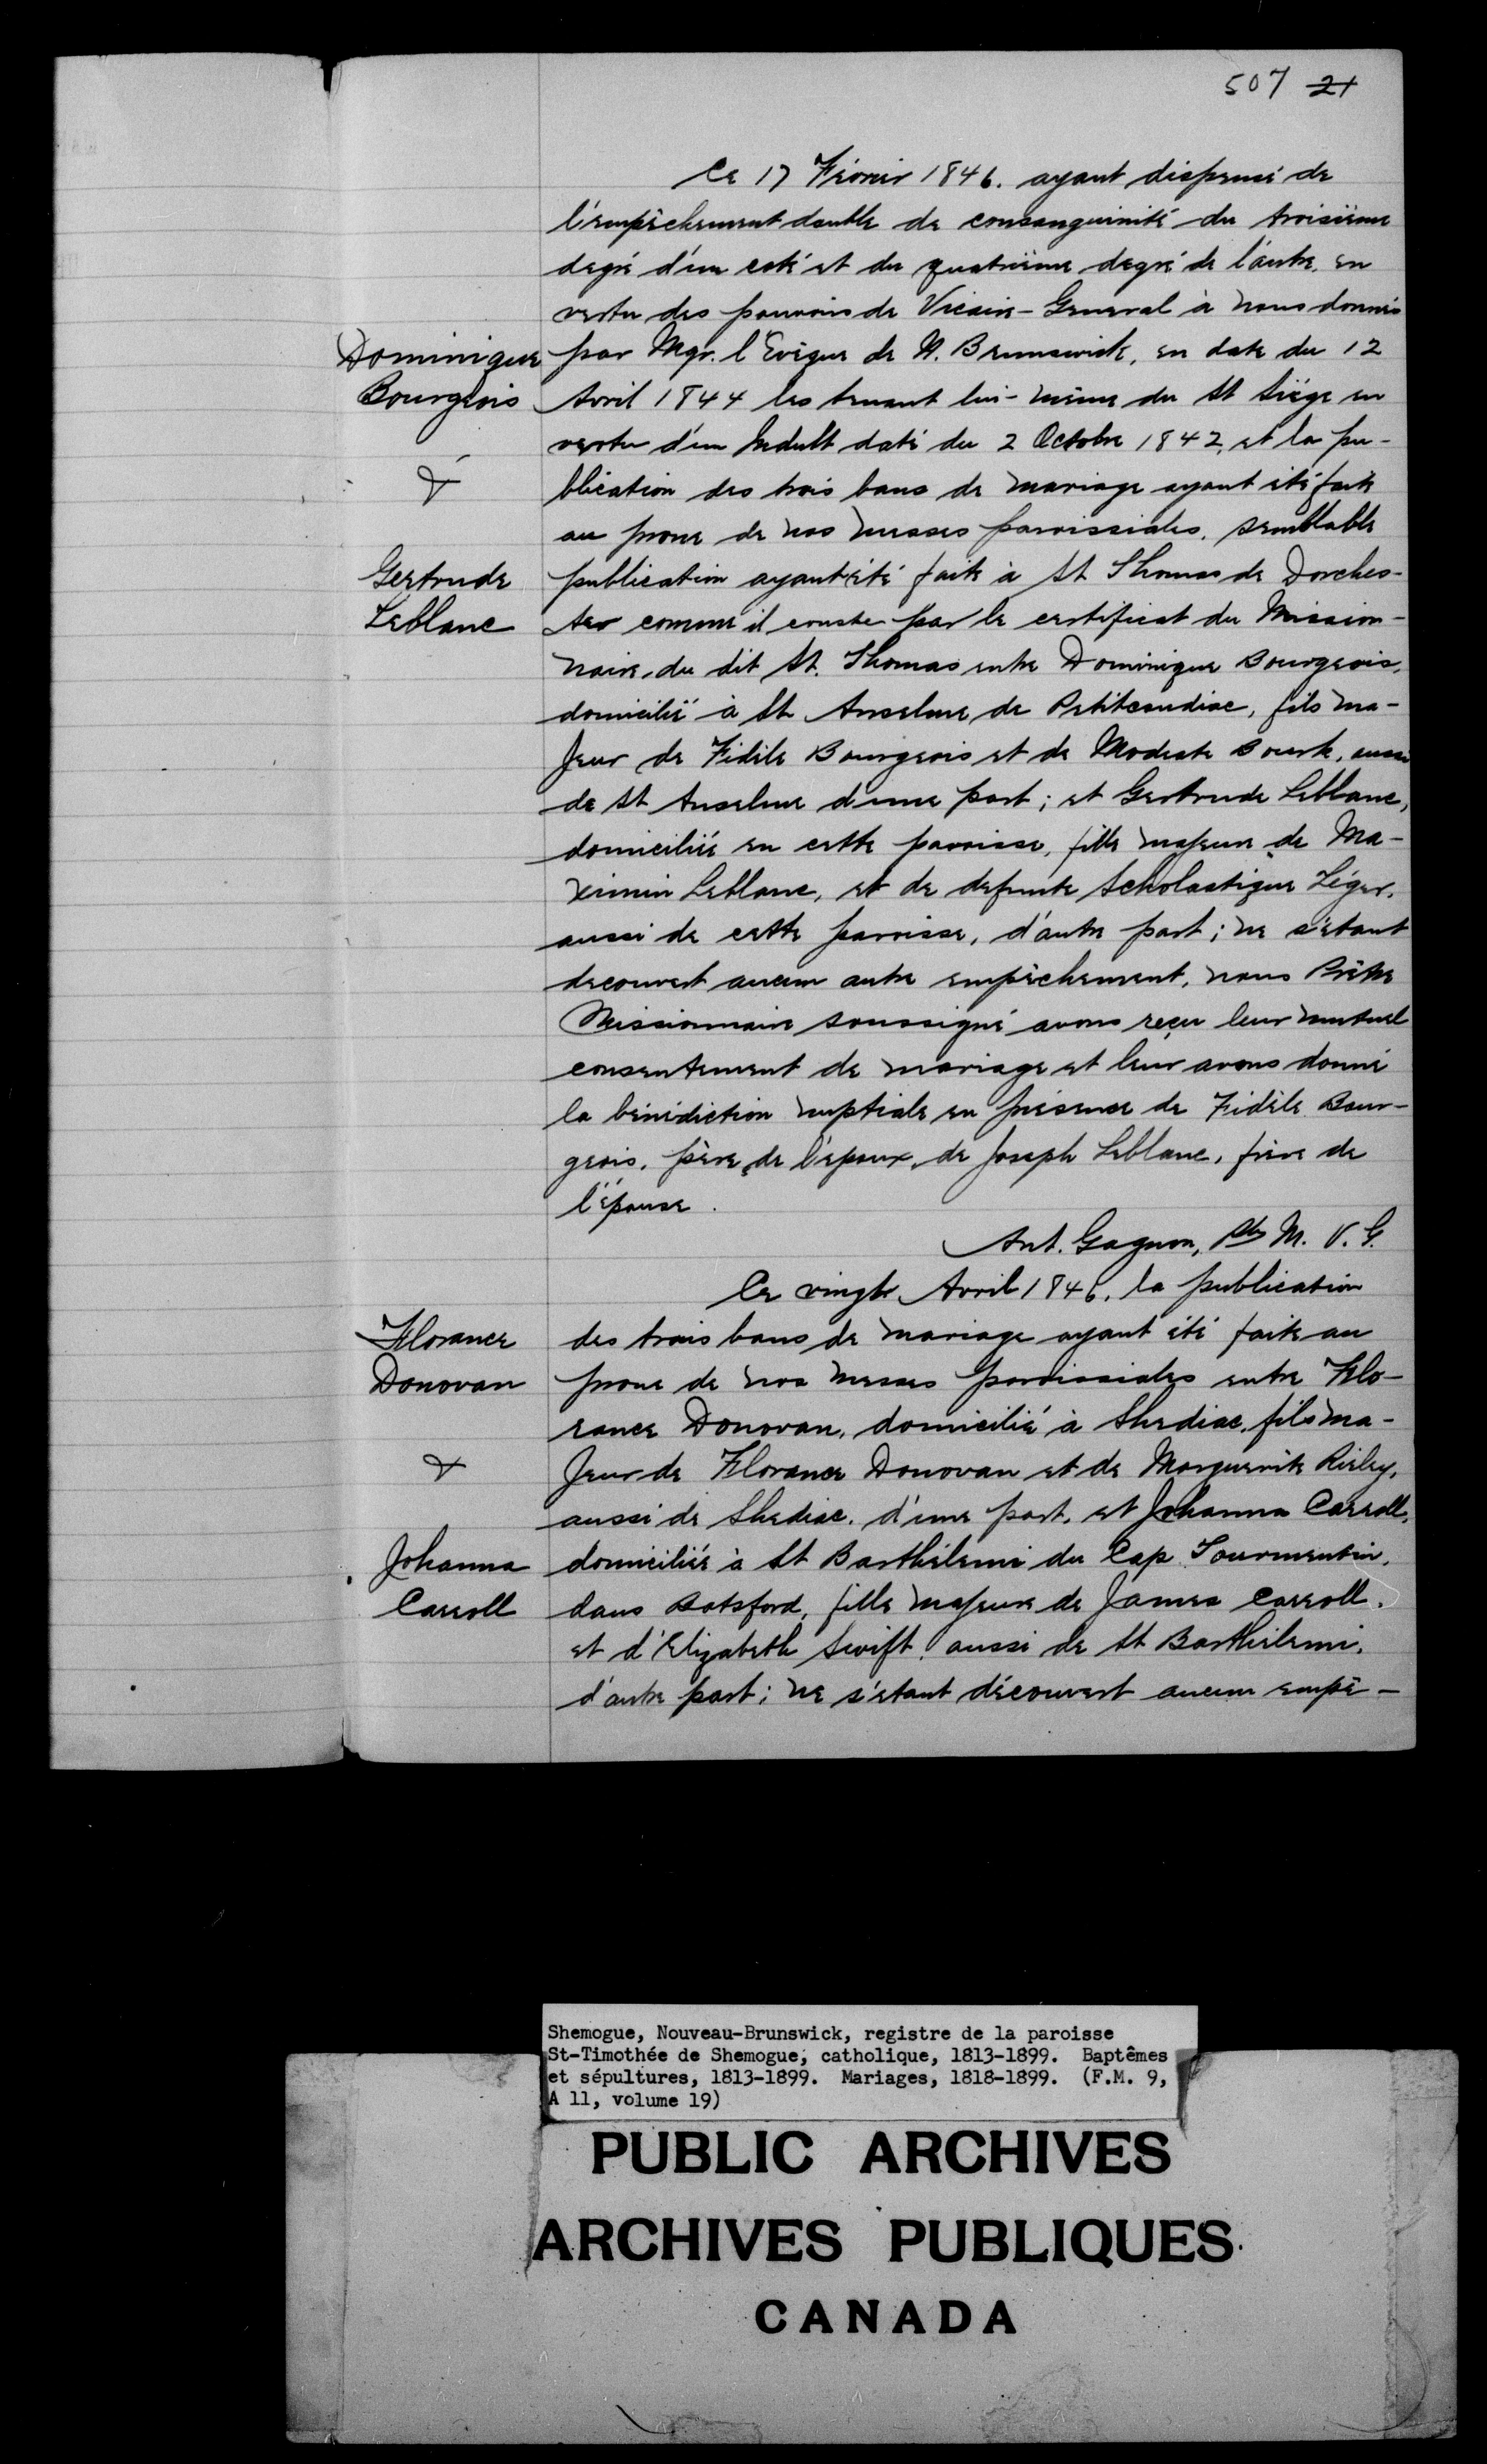 507 21
Ce 17 Février 1846. ayant dispensé de
l'empêchement double de consanguinité du troisième
degré d'un coté et du quatrième degré de l'autre, en
vertu des pouvoirs de Vicaire-General à nous donnés
Dominique
Bourgeois
&
Gertrude
Leblanc
par Mgr. l'Evêque de N. Brunswick, en date du 12
Avril 1844 les tenant lui-même du St Siége en
vertu d'un Indult daté du 2 Octobre 1842, et la pu-
blication des trois bans de mariage ayant été faite
au prone de nos messes paroissiales, semblable
publication ayant été faite à St Thomas de Dorches-
ter comme il conste par le certificat du Mission-
naire du dit St. Thomas entre Dominique Bourgeois,
domicilié à St Anselme de Petitcoudiac, fils ma-
jeur de Fidèle Bourgeois et de Modeste Bourk, aussi
de St Anselme d'une part; et Gertrude Leblanc,
domiciliée en cette paroisse, fille majeure de Ma-
ximin Leblanc, et de defunte Scholastique Léger,
aussi de cette paroisse, d'autre part; ne s'étant
decouvert aucun autre empêchement, nous Prêtre
Missionnaire soussigné avons reçu leur mutuel
consentement de mariage et leur avons donné
la bénédiction nuptiale en présence de Fidèle Bour-
geois, père de l'epoux, de Joseph Leblanc, frère de
l'épouse.
Ant. Gagnon, Ptr M. V. G.
Ce vingt Avril 1846, la publication
Florance
Donovan
&
Johanna
Carroll
des trois bans de mariage ayant été faite au
prone de nos messes paroissiales entre Flo-
rance Donovan, domicilié à Shediac, fils ma-
jeur de Florance Donovan et de Marguerite Rieley,
aussi de Shediac, d'une part, et Johanna Carroll,
domiciliée à St Barthélemi du Cap Tourmentin,
dans Botsford, fille majeure de James Carroll,
et d'Elizabeth Swift, aussi de St Barthélemi,
d'autre part; ne s'étant découvert aucun empê-
Shemogue, Nouveau-Brunswick, registre de la paroisse
St-Timothée de Shemogue, catholique, 1813-1899. Baptêmes
et sépultures, 1813-1899. Mariages, 1818-1899. (F.M. 9,
A 11, volume 19)
PUBLIC ARCHIVES
ARCHIVES PUBLIQUES
CANADA